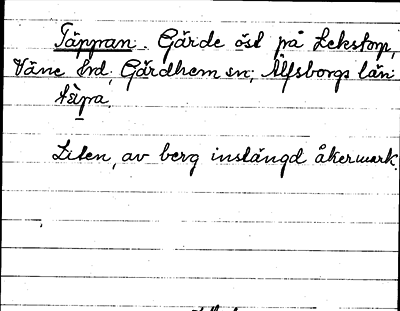 Täppan. Gärde öst på Lekstorp,
Väne hrd, Gärdhem sn, Älfsborgs län
tàpa.
Liten, av berg instängd åkermark.